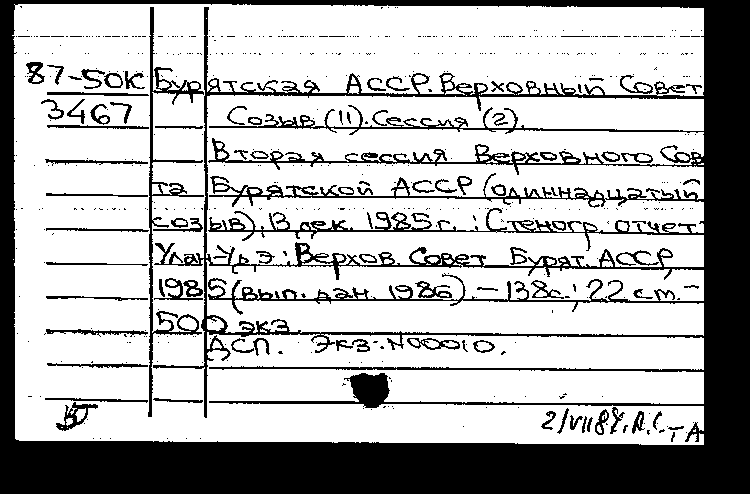 87-50К Бурятская АССР. Верховный Совет.
3467 Созыв (11). Сессия (2).
Вторая сессия Верховного Сове
та Бурятской АССР (одиннадцатый
созыв), 13 дек. 1985 г. : Стеногр. отчет.-
Улан-Удэ : Верхов. Совет Бурят. АССР,
1985 (вып. дан. 1986). - 138с.; 22 см. -
500 экз.
ДСП. Экз. N00010.